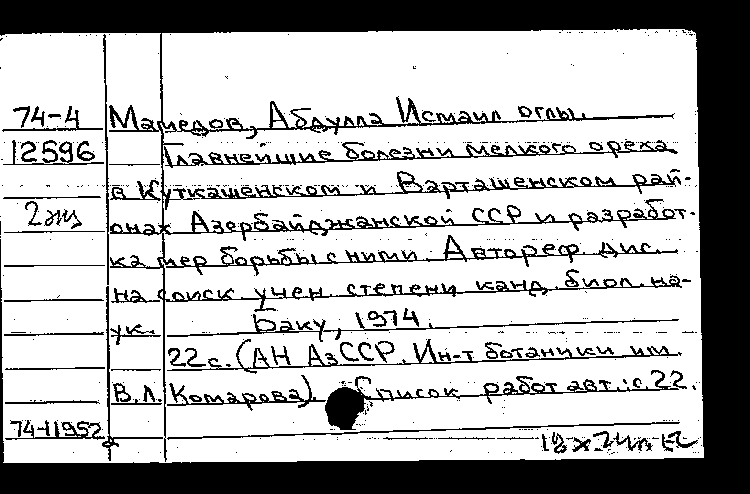 74-4 Мамедов, Абдулла Исмаил оглы.
12596 Главнейшие болезни мелкого ореха
в Куткашенском и Варташенском рай-
2 экз онах Азербайджанской ССР и разработ-
ка мер борьбы с ними. Автореф. дис.
на соиск. учен. степени канд. биол. на-
ук. Баку, 1974.
22 с. (АН АзССР. Ин-т ботаники им.
В.Л. Комарова). Список работ авт.: с. 22.
74-11952